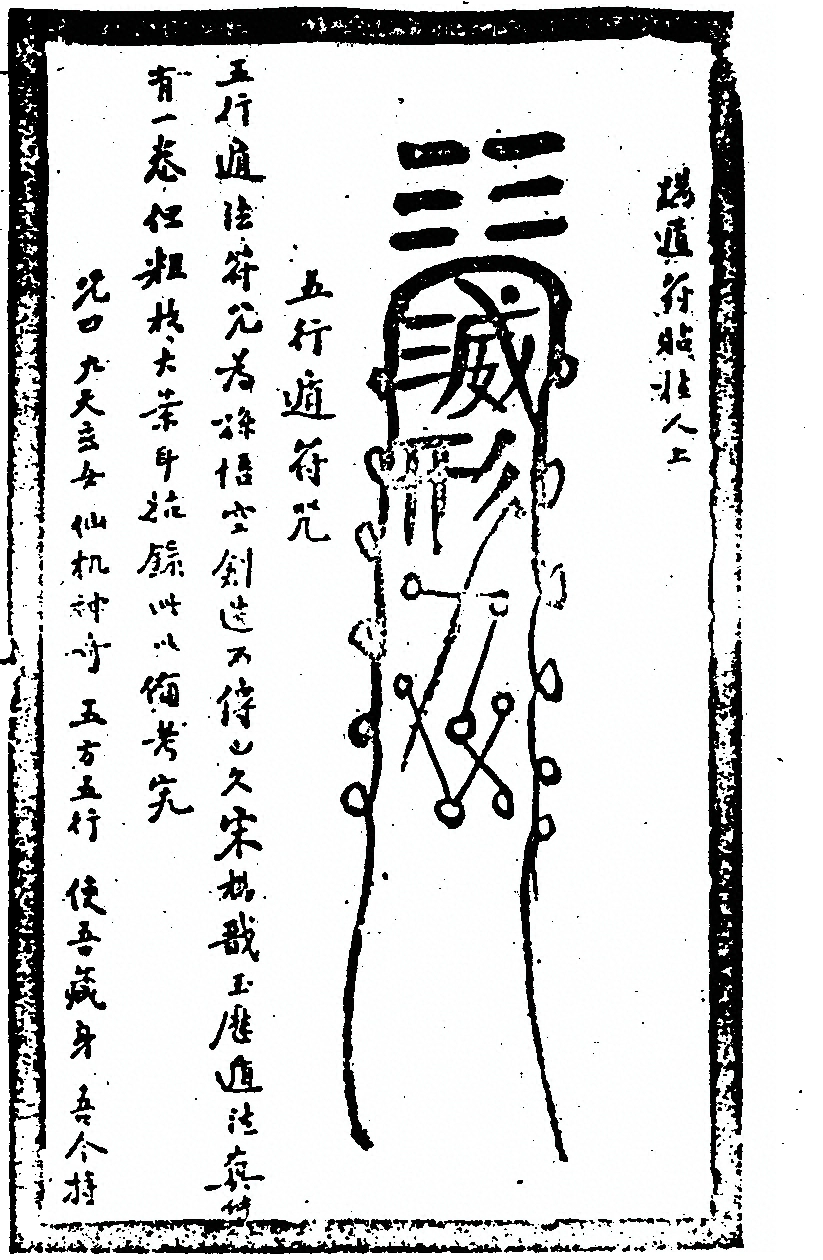 楊遁符貼壯人上
滅形
五行遁符咒
五行遁法符咒为孫悟空創造不傳已久宋楊戩玉歷遁法真傳
有一卷但粗枝大葉耳茲錄此以備考究
咒曰九天玄女仙机神奇五方五行使吾藏身吾今持